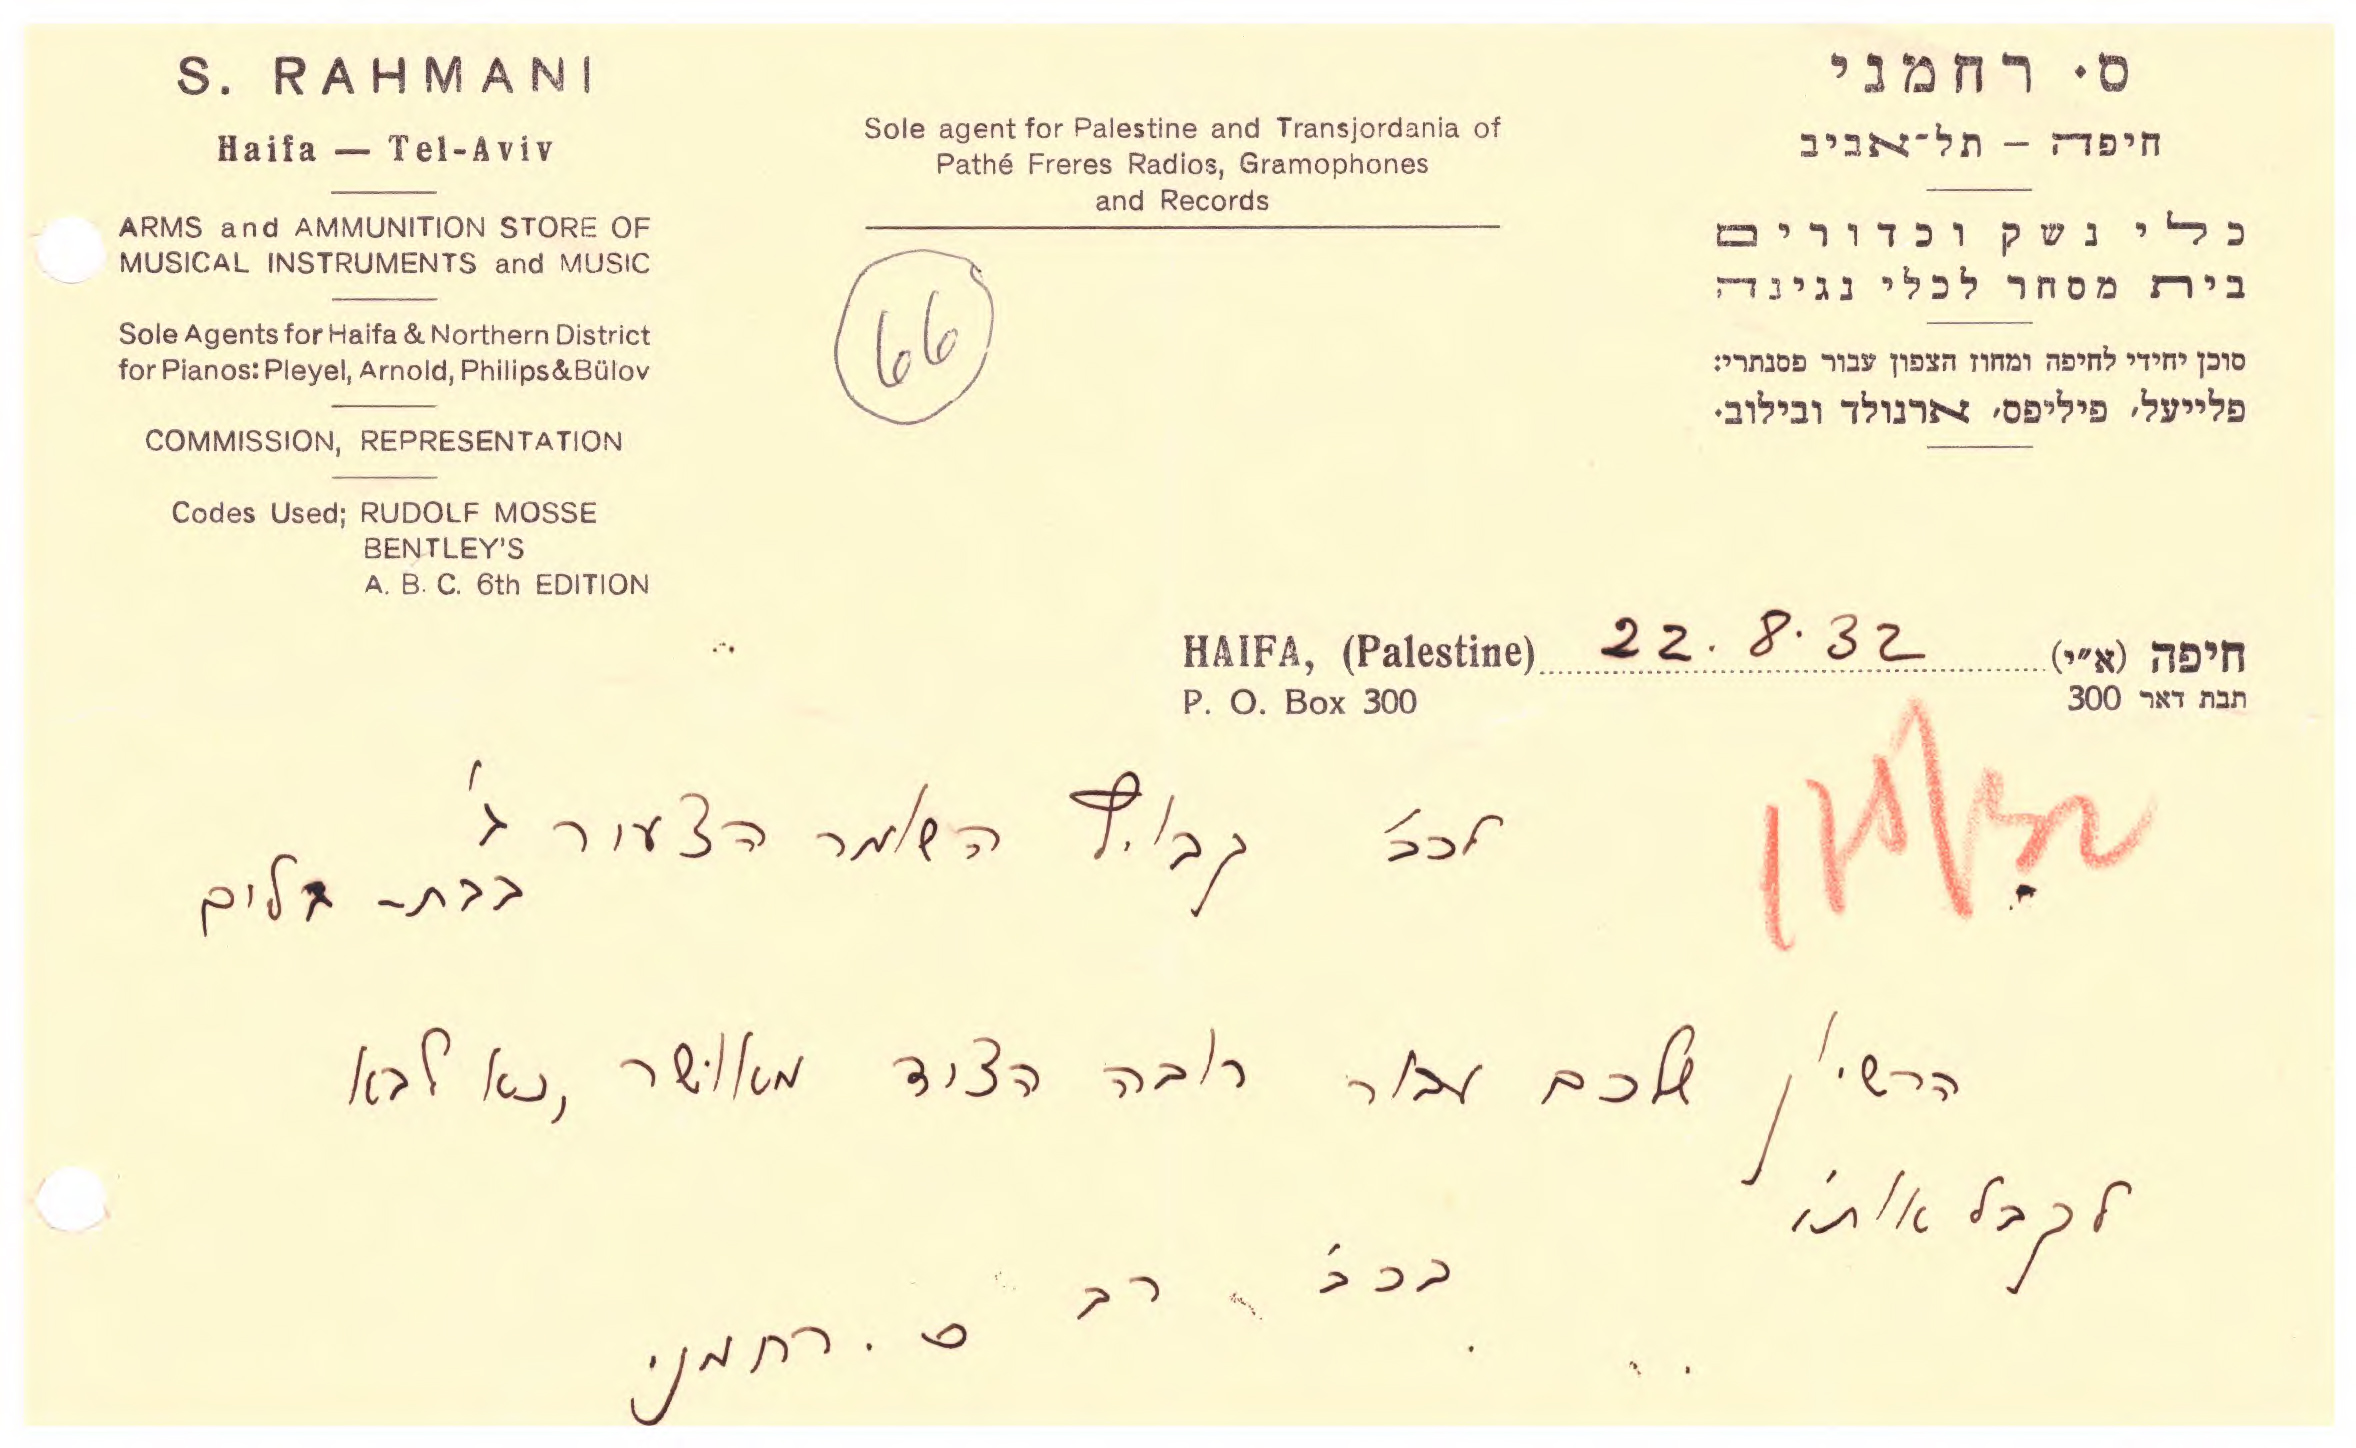 S. RAHMANI
Haifa — Tel-Aviv
ARMS and AMMUNITION STORE OF
MUSICAL INSTRUMENTS and MUSIC
Sole Agents for Haifa & Northern District
for Pianos: Pleyel, Arnold, Philips & Bülov
COMMISSION, REPRESENTATION
Codes Used; RUDOLF MOSSE
BENTLEY'S
A. B. C. 6th EDITION
Sole agent for Palestine and Transjordania of
Pathé Freres Radios, Gramophones
and Records
66
ס. רחמני
חיפה – תל-אביב
כלי נשק וכדורים
בית מסחר לכלי נגינה
סוכן יחידי לחיפה ומחוז הצפון עבור פסנתרי:
פלייעל, פיליפס, ארנולד ובילוב.
HAIFA, (Palestine) 22.8.32 חיפה (א"י)
P. O. Box 300
תבת דאר 300
לכב' קבוץ השומר הצעור ג'
בבת- גלים
הרשיון שלכם עבור רובה הציד מאושר, נא לבא
לקבל אותו
בכב' רב
ס. רחמני